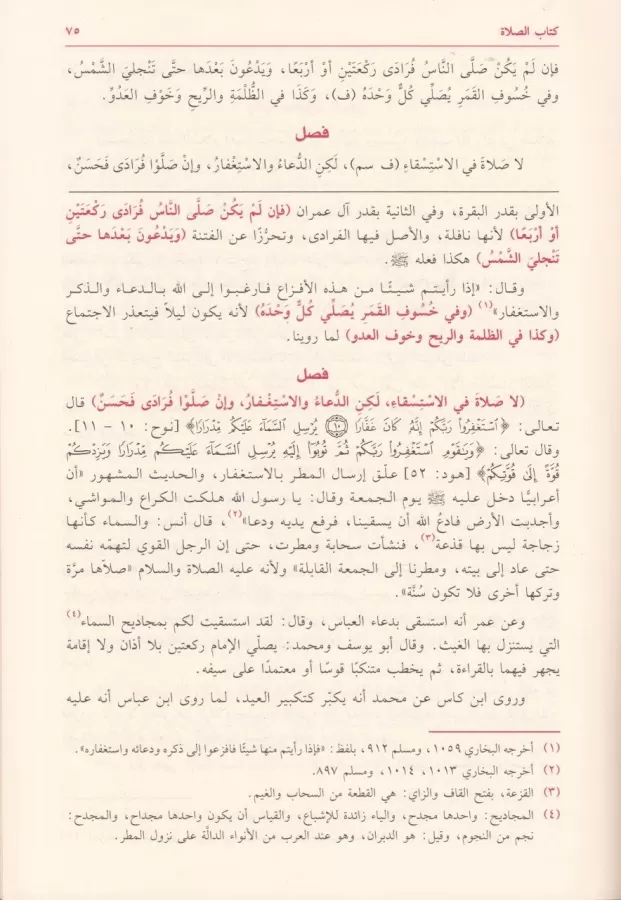 كتاب الصلاة ٧٥
فإن لَمْ يَكُنْ صَلَّى النَّاسُ فُرَادَى رَكْعَتَيْنِ أوْ أرْبَعًا، وَيَدْعُونَ بَعْدَها حتَّى تَنْجليَ الشَّمْسُ،
وفي خُسُوفِ القَمَرِ يُصَلِّي كُلٌّ وَحْدَهُ (ف)، وَكَذَا في الظُّلْمَةِ والرِّيحِ وَخَوْفِ العَدُوِّ.
فصل
لا صَلاةَ في الاسْتِسْقاءِ (ف سم)، لَكِنِ الدُّعاءُ والاسْتِغْفارُ، وإنْ صَلَّوْا فُرَادَى فَحَسَنٌ،
الأولى بقدر البقرة، وفي الثانية بقدر آل عمران (فإن لَمْ يَكُنْ صَلَّى النَّاسُ فُرَادَى رَكْعَتَيْنِ
أوْ أرْبَعًا) لأنها نافلة، والأصل فيها الفرادى، وتحرُّزًا عن الفتنة (وَيَدْعُونَ بَعْدَها حتَّى
تَنْجليَ الشَّمْسُ) هكذا فعله ﷺ.
وقال: «إذا رأيتم شيئًا من هذه الأفزاع فارغبوا إلى الله بالدعاء والذكر
والاستغفار»(١) (وفي خُسُوفِ القَمَرِ يُصَلِّي كُلٌّ وَحْدَهُ) لأنه يكون ليلاً فيتعذر الاجتماع
(وكذا في الظلمة والريح وخوف العدو) لما روينا.
فصل
(لا صَلاةَ في الاسْتِسْقاءِ، لَكِنِ الدُّعاءُ والاسْتِغْفارُ، وإنْ صَلَّوْا فُرَادَى فَحَسَنٌ) قال
تعالى: ﴿ٱسْتَغْفِرُوا۟ رَبَّكُمْ إِنَّهُۥ كَانَ غَفَّارًا ۝١٠ يُرْسِلِ ٱلسَّمَآءَ عَلَيْكُم مِّدْرَارًا﴾ [نوح: ١٠ - ١١].
وقال تعالى: ﴿وَيَـٰقَوْمِ ٱسْتَغْفِرُوا۟ رَبَّكُمْ ثُمَّ تُوبُوٓا۟ إِلَيْهِ يُرْسِلِ ٱلسَّمَآءَ عَلَيْكُم مِّدْرَارًا وَيَزِدْكُمْ
قُوَّةً إِلَىٰ قُوَّتِكُمْ﴾ [هود: ٥٢] علّق إرسال المطر بالاستغفار، والحديث المشهور «أن
أعرابيًّا دخل عليه ﷺ يوم الجمعة وقال: يا رسول الله هلكت الكراع والمواشي،
وأجدبت الأرض فادعُ الله أن يسقينا، فرفع يديه ودعا»(٢)، قال أنس: والسماء كأنها
زجاجة ليس بها قذعة(٣)، فنشأت سحابة ومطرت، حتى إن الرجل القوي لتهمّه نفسه
حتى عاد إلى بيته، ومطرنا إلى الجمعة القابلة» ولأنه عليه الصلاة والسلام «صلاّها مرَّة
وتركها أخرى فلا تكون سُنَّة».
وعن عمر أنه استسقى بدعاء العباس، وقال: لقد استسقيت لكم بمجاديح السماء(٤)
التي يستنزل بها الغيث. وقال أبو يوسف ومحمد: يصلّي الإمام ركعتين بلا أذان ولا إقامة
يجهر فيهما بالقراءة، ثم يخطب متنكبًا قوسًا أو معتمدًا على سيفه.
وروى ابن كاس عن محمد أنه يكبّر كتكبير العيد، لما روى ابن عباس أنه عليه
(١) أخرجه البخاري ١٠٥٩، ومسلم ٩١٢، بلفظ: «فإذا رأيتم منها شيئًا فافزعوا إلى ذكره ودعائه واستغفاره».
(٢) أخرجه البخاري ١٠١٣، ١٠١٤، ومسلم ٨٩٧.
(٣) القزعة، بفتح القاف والزاي: هي القطعة من السحاب والغيم.
(٤) المجاديح: واحدها مجدح، والياء زائدة للإشباع، والقياس أن يكون واحدها مجداح، والمجدح:
نجم من النجوم، وقيل: هو الدبران، وهو عند العرب من الأنواء الدالَّة على نزول المطر.